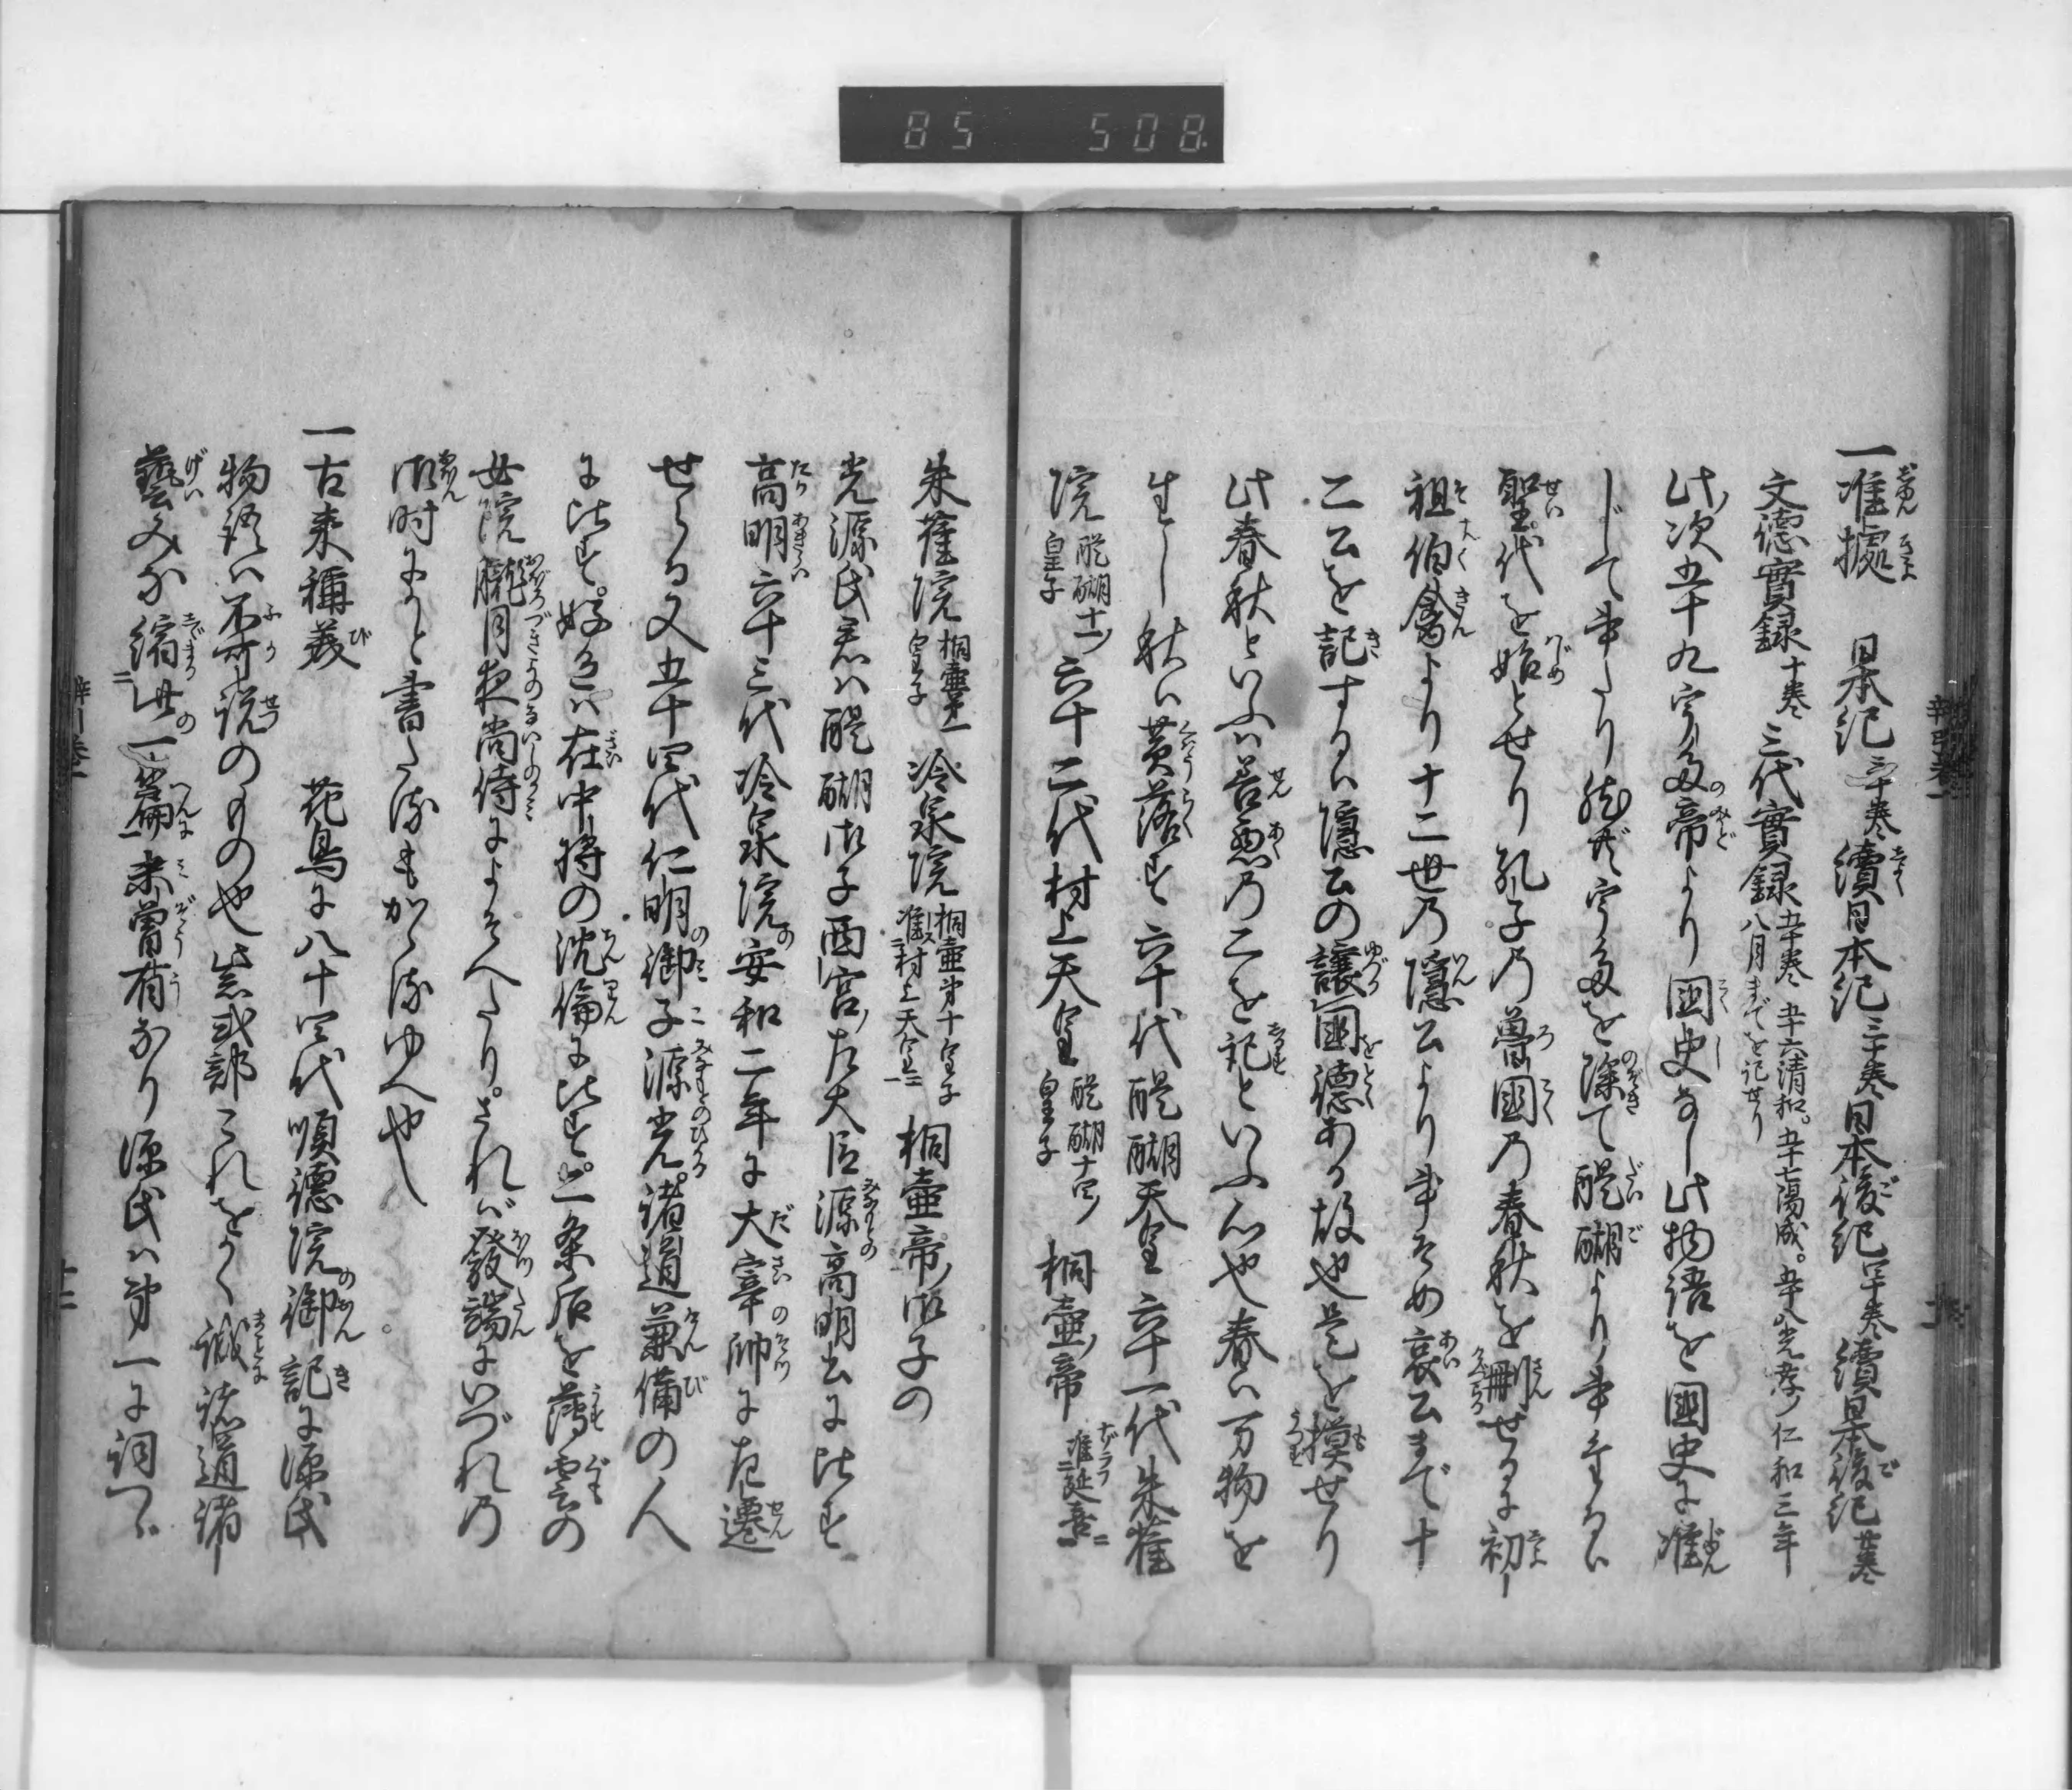 85 508
一准據 日本紀三十巻續日本紀三十巻日本後紀四十巻續日本後紀廿巻
文徳實録十巻三代實録五十巻 五十六清和。五十七陽成。五十八光孝ノ仁和三年八月までを記せり
此次五十九宇多の帝より國史なし此物語を國史に准
じて書たり然ば宇多を除て醍醐より書けるハ
聖代を始とせり孔子乃魯國乃春秋を刪せるに初
祖伯禽より十二世乃隱公より書そめ哀公まで十
二公を記するハ隱公の讓國徳ある故也是を摸せり
此春秋といふハ善惡乃二を記といふ心也春ハ万物を
生し秋ハ黄落す六十代醍醐天皇六十一代朱雀
院醍醐十一ノ皇子六十二代村上天皇醍醐十四ノ皇子 桐壷ノ帝准延喜
朱雀院桐壷第一皇子冷泉院桐壷第十皇子准村上天皇桐壷帝ノ御子の
光源氏君ハ醍醐御子西宮ノ左大臣源高明公に比す
高明六十三代冷泉院の安和二年に大宰帥に左遷
せらる又五十四代仁明の御子源光諸道兼備の人
に比す。好色ハ在中将の沈倫に比す。二条后を薄雲の
女院朧月夜尚侍によそへたり。されバ發端にいづれの
御時にかと書たるもかゝるゆへ也
一古来称美 花鳥に八十四代順徳院の御記に源氏
物語ハ不可説のもの也紫式部これをかく誠諸道諸
藝みな縮此一篇未曽有なり源氏ハ第一に詞つゞ